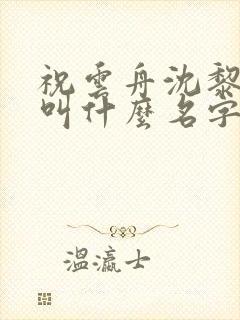 祝雲舟沈黎
叫什麼名字
溫瀛士